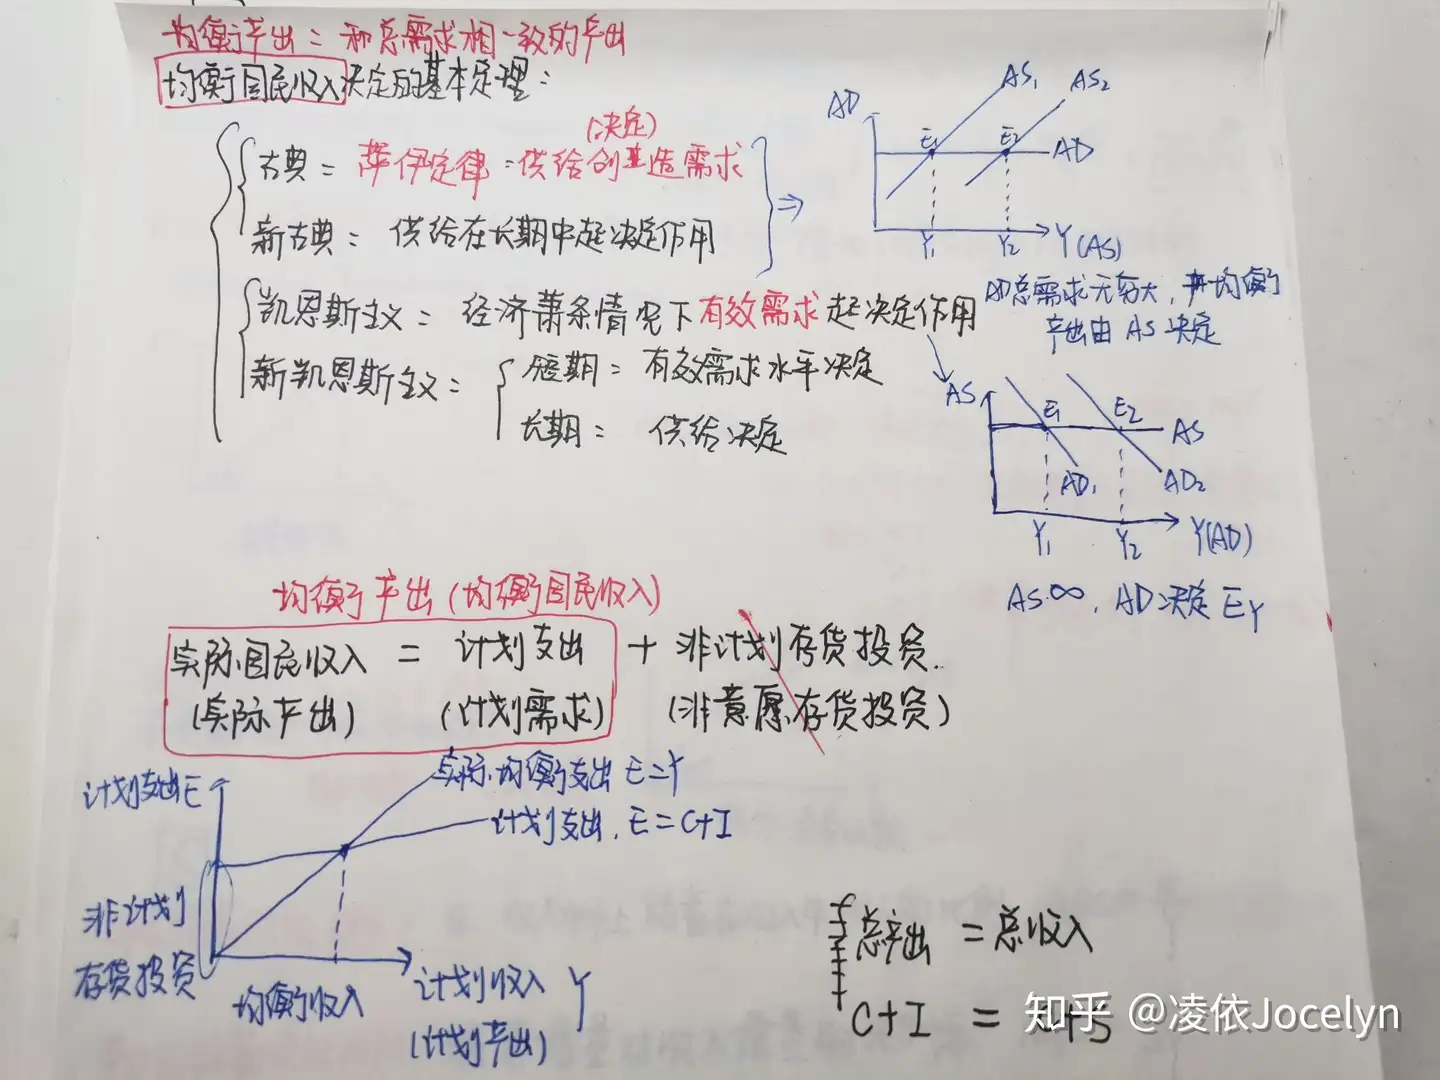 均衡产出：和总需求相一致的产出
均衡国民收入决定的基本定理：
(决定)
古典：萨伊定律：供给创造需求
新古典：供给在长期中起决定作用
凯恩斯主义：经济萧条情况下有效需求起决定作用
新凯恩斯主义：
短期：有效需求水平决定
长期：供给决定
AD
AS₁
AS₂
E₁
E₂
AD
Y₁
Y₂
Y(AS)
即总需求无穷大，均衡
产出由AS决定
AS
E₁
E₂
AS
AD₁
AD₂
Y₁
Y₂
Y(AD)
AS∞，AD决定EY
均衡产出(均衡国民收入)
实际国民收入 = 计划支出 + 非计划存货投资
(实际产出) (计划需求) (非意愿存货投资)
计划支出E
实际均衡支出E=Y
计划支出，E=C+I
非计划
存货投资
均衡收入
计划收入 Y
(计划产出)
总产出 = 总收入
C+I =
知乎 @凌依Jocelyn